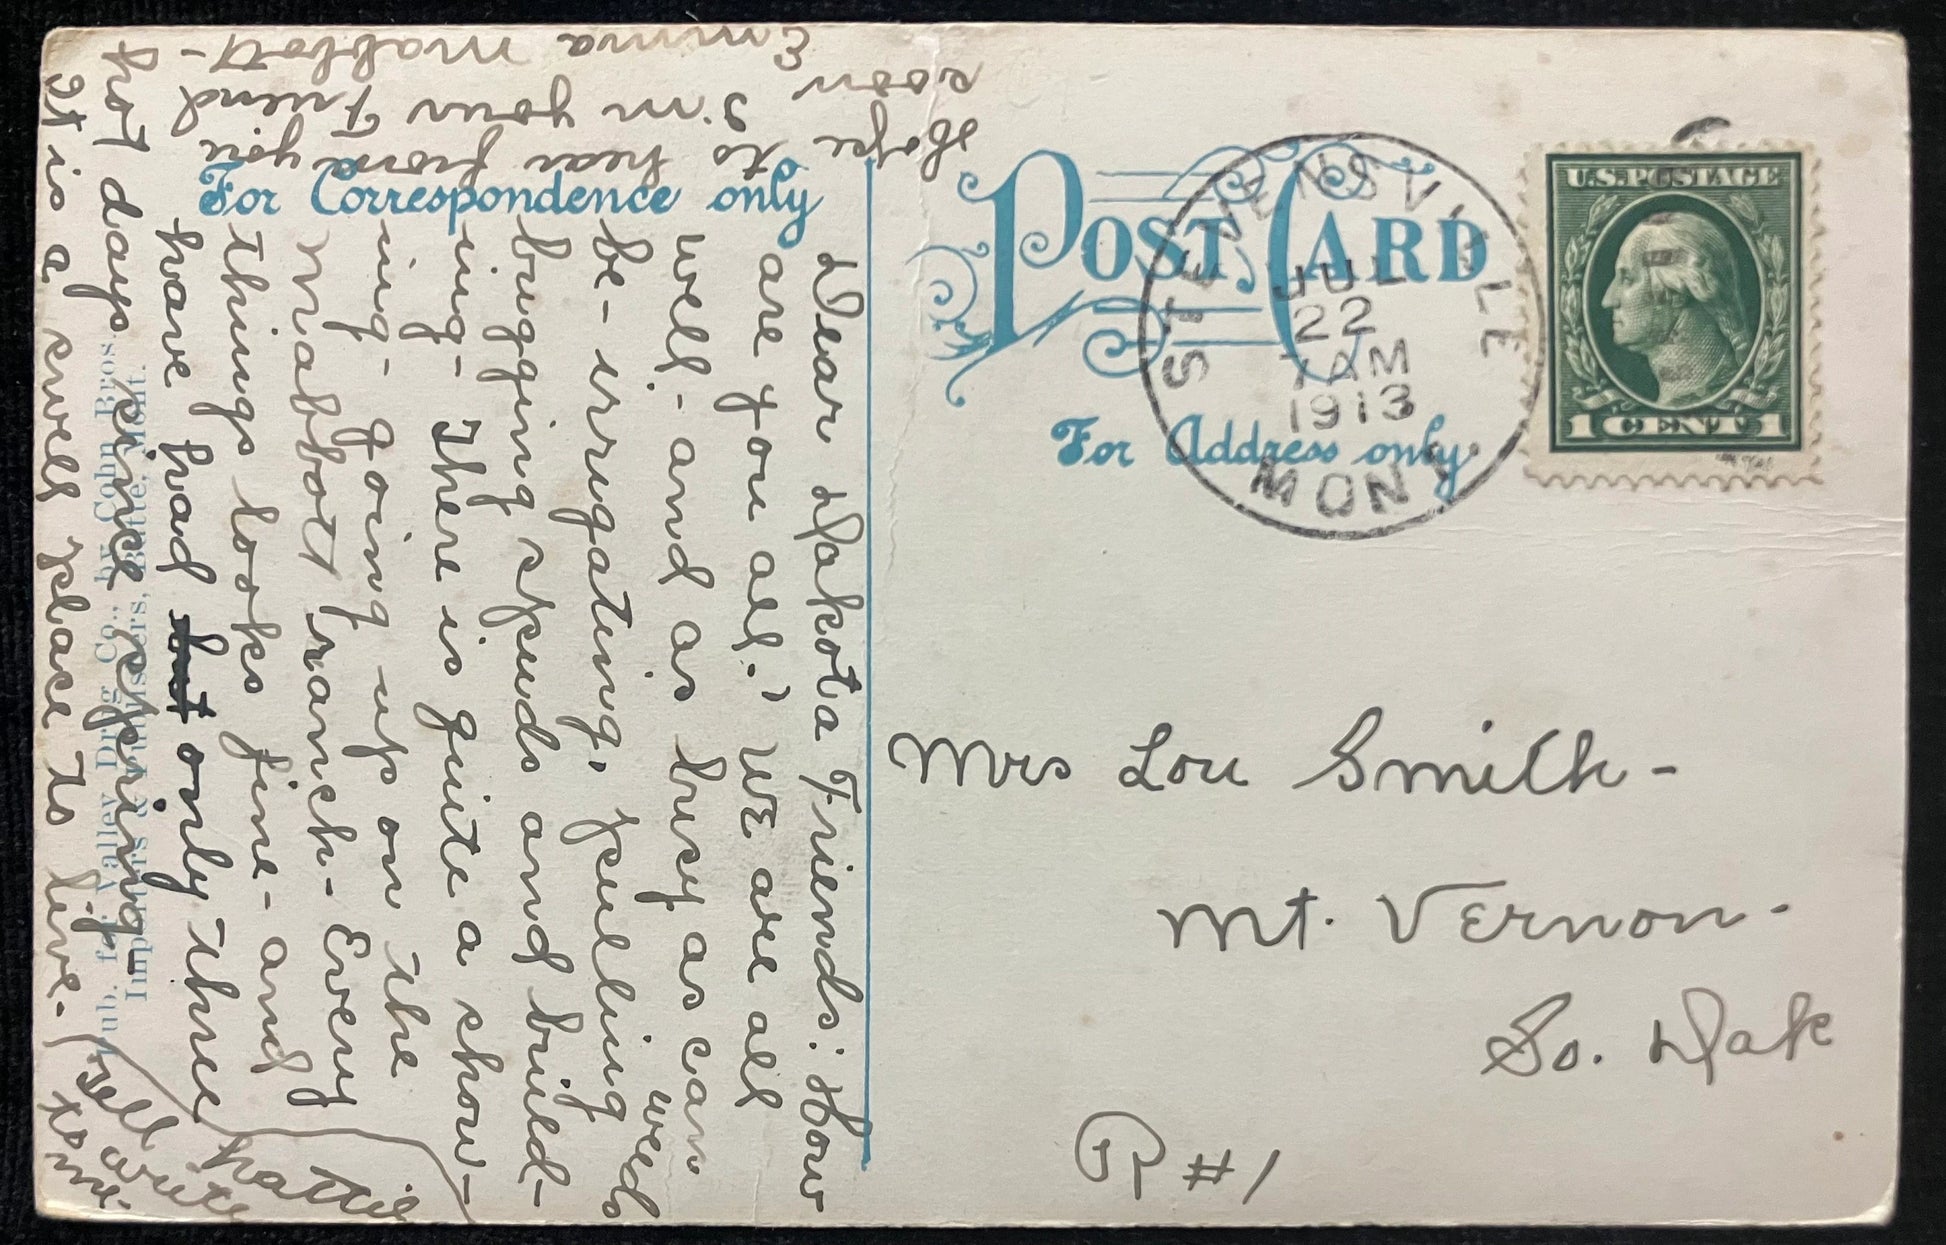 For Correspondence only
POST CARD
For Address only.
STEVENSVILLE
JUL
22
7 AM
1913
MONT.
U.S. POSTAGE
1 CENT 1
Mrs Lou Smith -
Mt. Vernon -
So. Dak
R #1
Dear Dakota Friends: How
are you all? We are all
well - and as busy as can
be - irrigating, pulling weeds
bugging spuds and build-
ing - There is quite a show-
ing - going up on the
Mabbott ranch - Every
things looks fine - and
have had only three
hot days since spring -
It is a swell place to live. -
Tell Hattie
to write
me.
Hope
to hear from you
soon
I'm your Friend
Emma Mabbott -
Pub. for Valley Drug Co., by Cohn Bros.
Importers & Publishers, Butte, Mont.